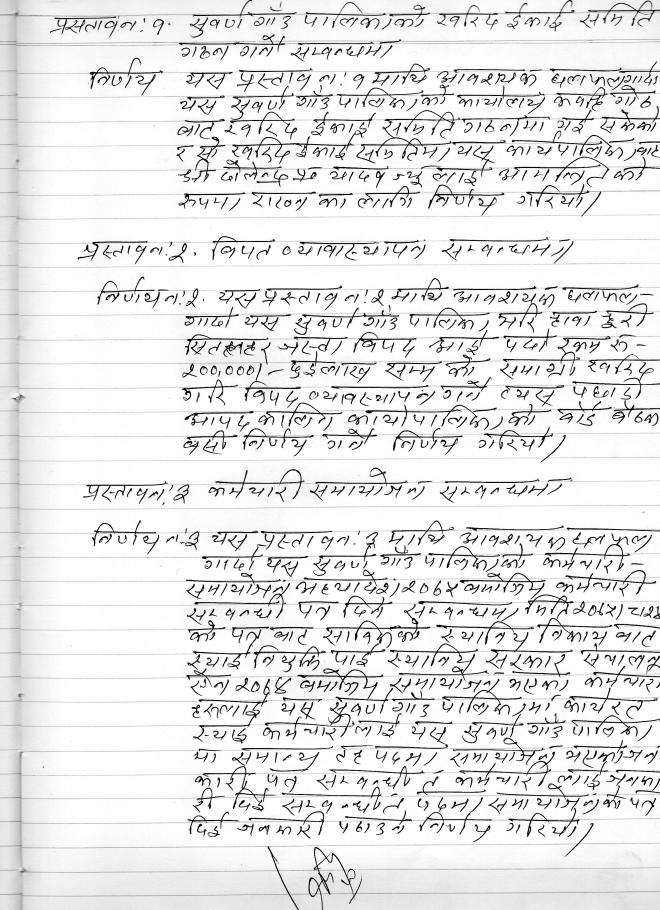 प्रस्तावन: १. सुवर्ण गाँउ पालिकाको खरिद ईकाई समिति
गठन गर्ने सम्बन्धमा
निर्णय यस प्रस्ताव नं: १ माथि आवश्यक छलफल गर्दा
यस सुवर्ण गाँउ पालिकाको कार्यालय
बाट खरिद ईकाई समिति गठनमा गई सकेको
र सो खरिद ईकाई समितिमा यस कार्यपालिका बाट
श्री यादव ज्यू लाई आमन्त्रित को
रूपमा राख्न का लागि निर्णय गरियो।
प्रस्तावन: २. विपत व्यावास्थापन सम्बन्धमा।
निर्णयन: २. यस प्रस्तावन: २ माथि आवश्यक छलफल-
गर्दा यस सुवर्ण गाँउ पालिका भरि हावा हुरी
सितलहर जस्ता विपद आई पर्दा रकम रू-
२००,०००।- दुईलाख सम्म को सामाग्री खरिद
गरि विपद व्यावस्थापन गर्ने त्यस पछाडी
आपद कालिन कार्यपालिका को बोर्ड बैठक
बसी निर्णय गर्ने निर्णय गरियो।
प्रस्तावन: ३ कर्मचारी समायोजन सम्बन्धमा
निर्णयन: ३ यस प्रस्तावन: ३ माथि आवश्यक छलफल
गर्दा यस सुवर्ण गाँउ पालिकाको कर्मचारी-
समायोजन अध्यादेश २०७५ बमोजिम कर्मचारी
सम्बन्धी पत्र दिने सम्बन्धमा मिति
को पत्र बाट साविकको स्थानिय निकाय बाट
स्थाई नियुक्ति पाई स्थानिय सरकार संचालन
ऐन २०७४ बमोजिम समायोजन भएका कर्मचारी
हरूलाई यस सुवर्ण गाँउ पालिकामा कार्यरत
स्थाई कर्मचारी लाई यस सुवर्ण गाँउ पालिका
मा समान्य तह पदमा समायोजन भएको जान
कारी पत्र सम्बन्धीत कर्मचारी लाई जानका
री दिई सम्बन्धीत पदमा समायोजनको पत्र
दिई जानकारी पठाउने निर्णय गरियो।